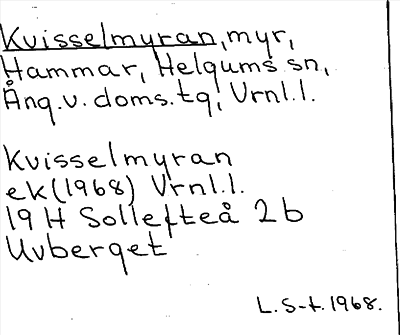 Kvisselmyran, myr,
Hammar, Helgums sn,
Ång.v. doms.tg, Vrnl.l.
Kvisselmyran
ek (1968) Vrnl.l.
19 H Sollefteå 2 b
Uvberget
L. S-t. 1968.